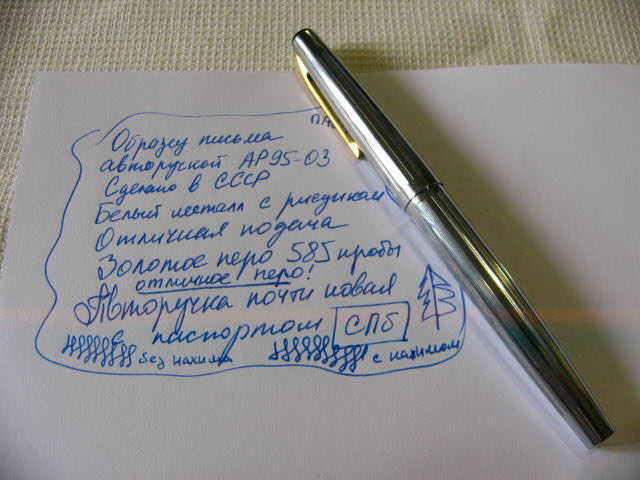 ПА
Образец письма
авторучкой АР95-03
Сделано в СССР
Белый металл с рисунком
Отличная подача
Золотое перо 585 пробы
отличное перо!
Авторучка почти новая
с паспортом СПб
без нажима с нажимом